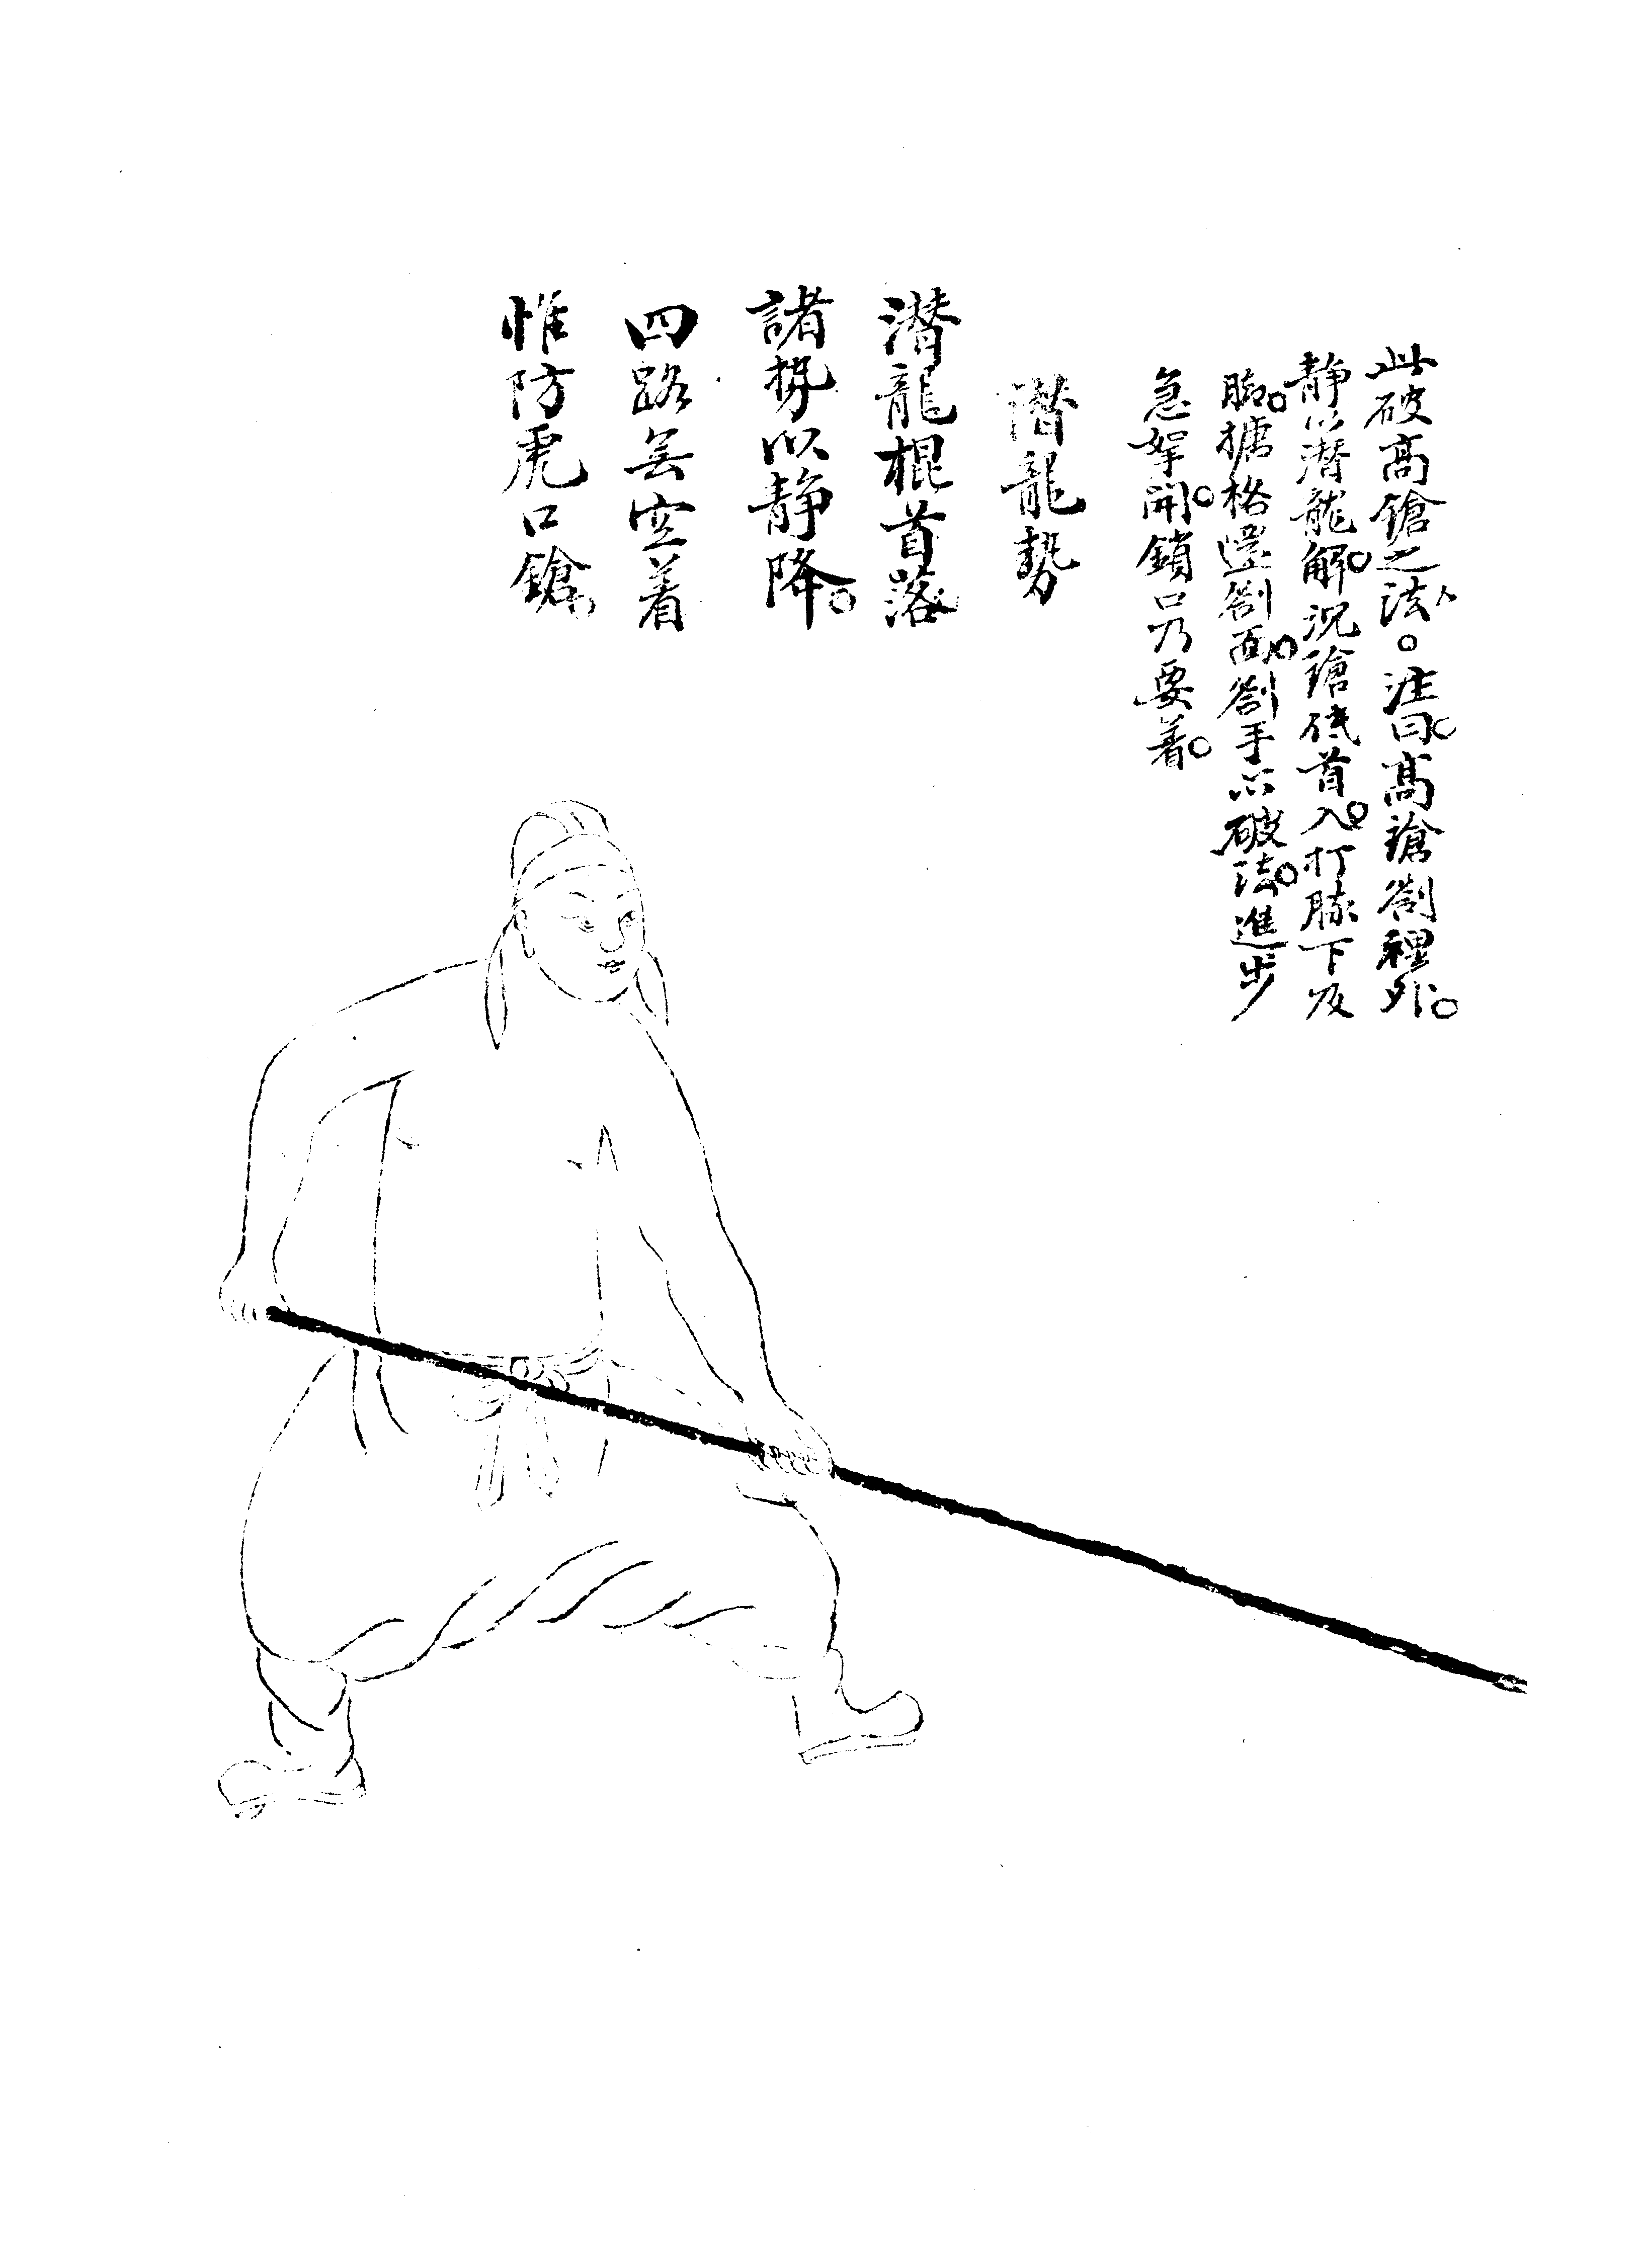 此破高鎗之法。注曰。高鎗劄裡外。
静以潜龍解。況鎗低首入。打膝下及
脚。搪格邊劄面。劄手亦破法。進步
急拏開。鎖口乃要着。
潜龍勢
潜龍棍首落
諸势以静降。
四路無空着
惟防虎口鎗